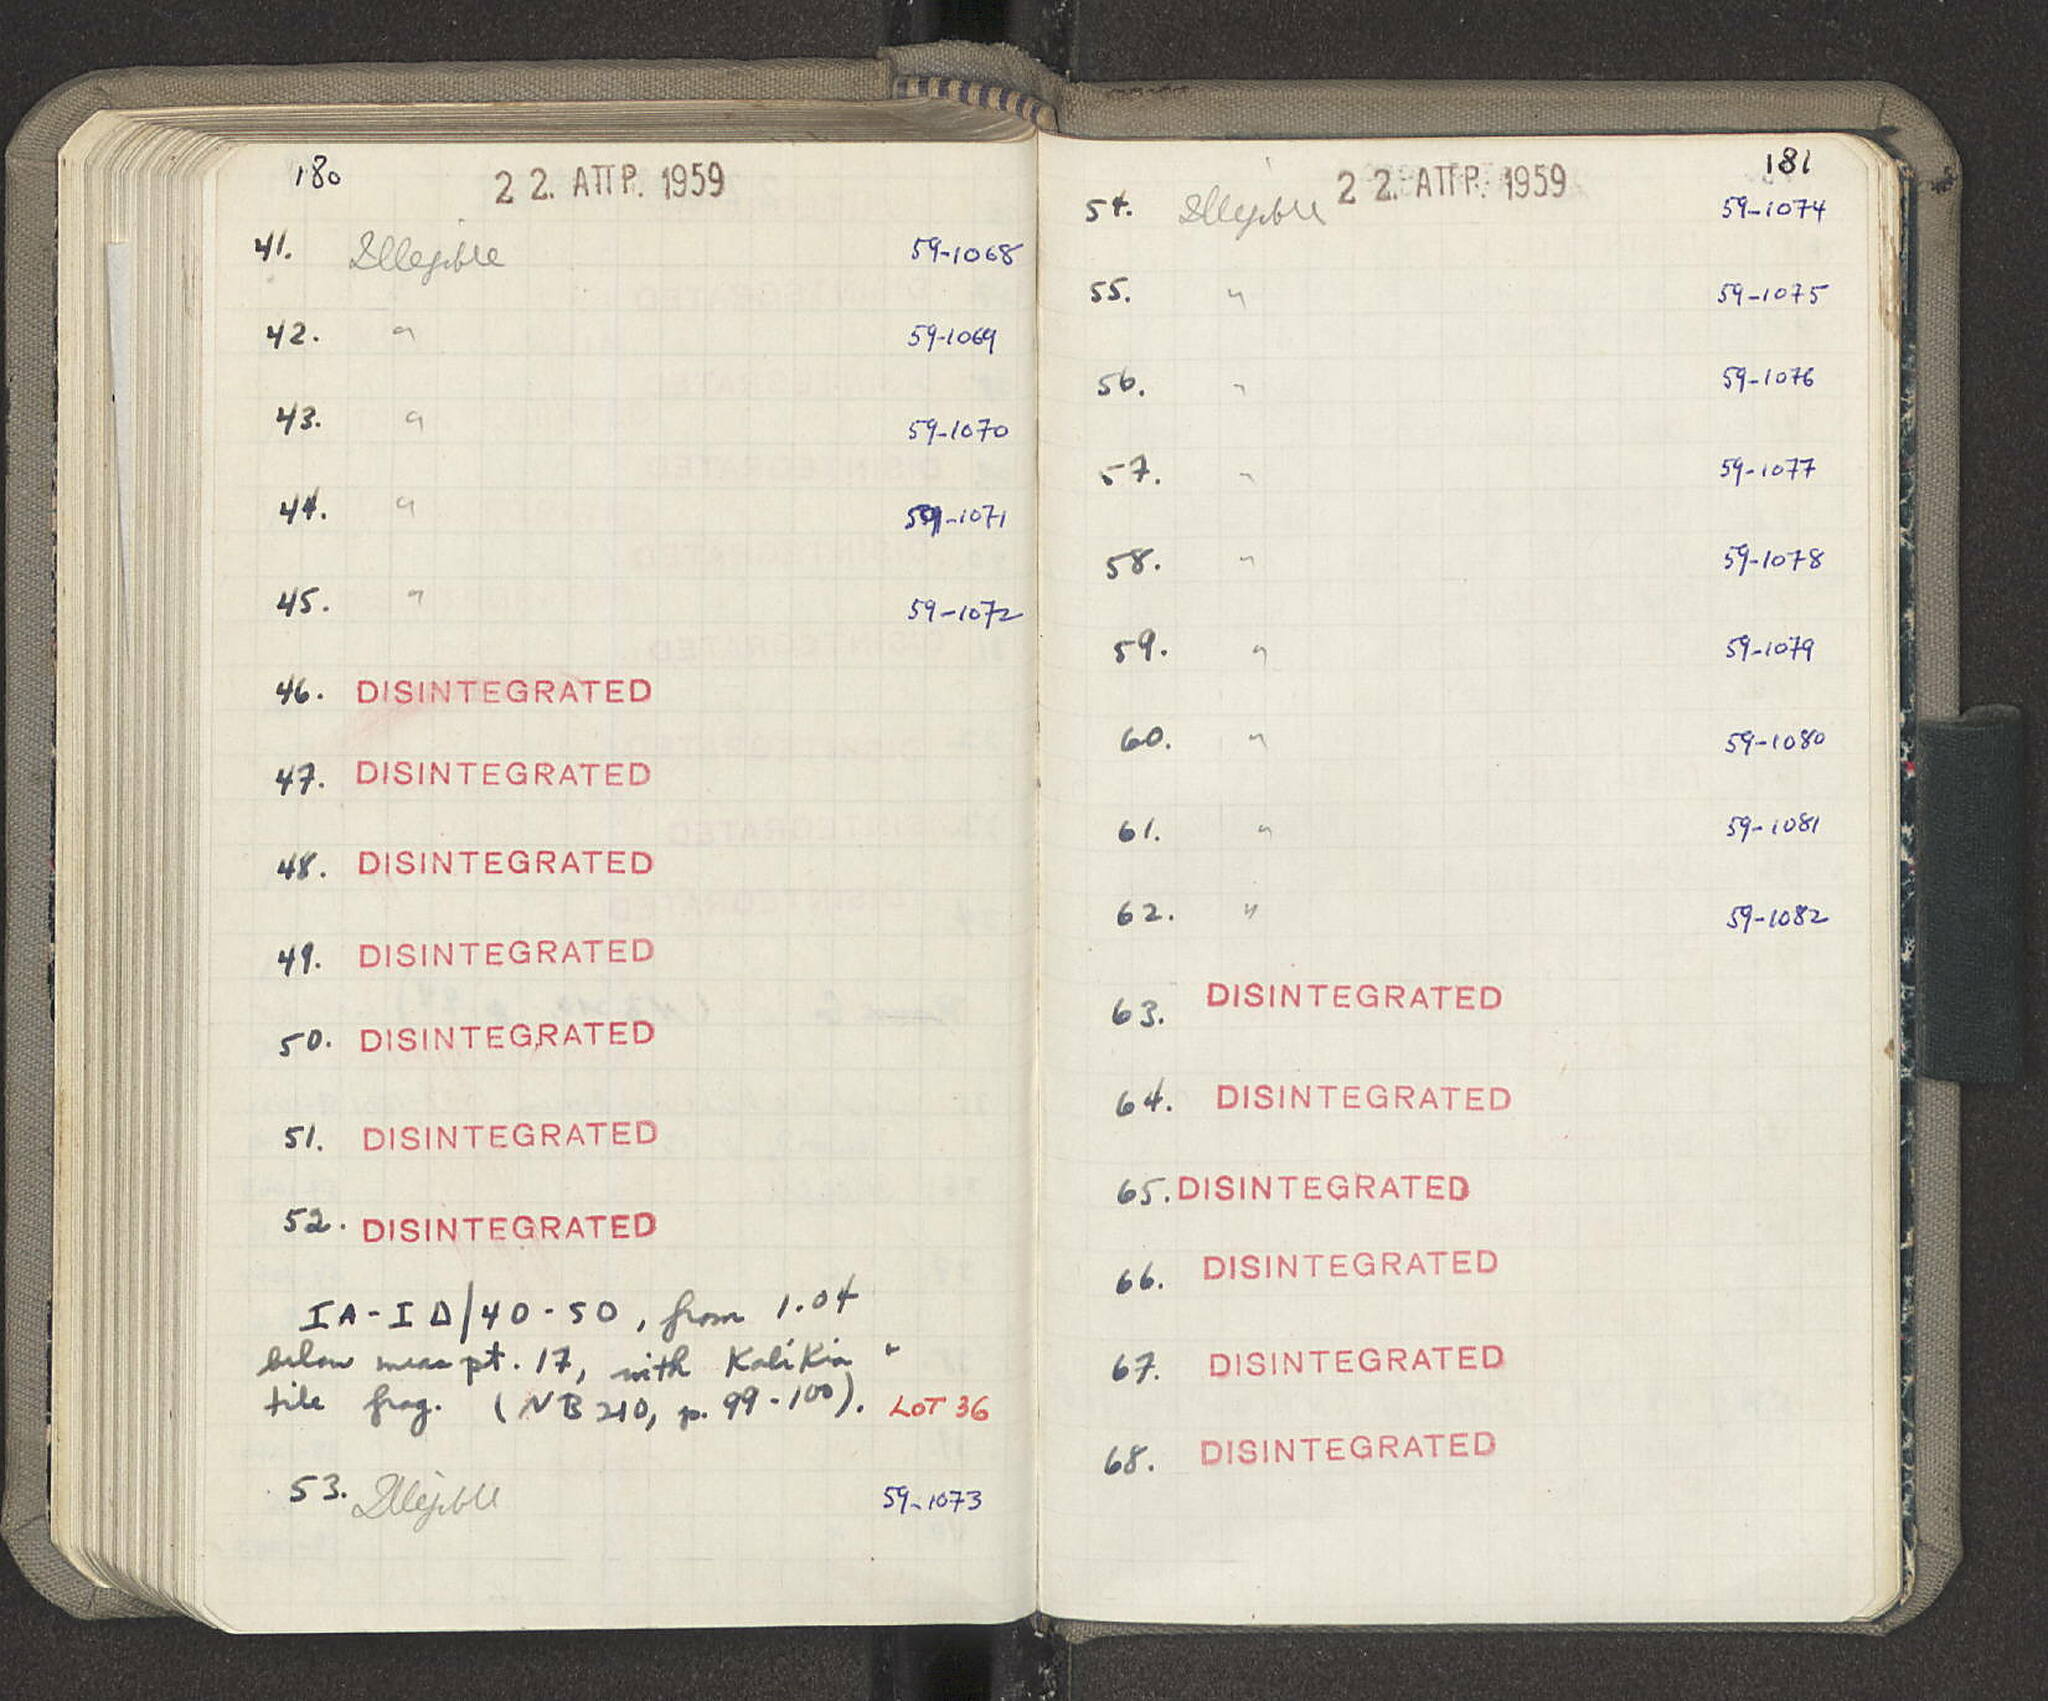 180
22. ΑΠΡ. 1959
41. Illegible 59-1068
42. " 59-1069
43. " 59-1070
44. " 59-1071
45. " 59-1072
46. DISINTEGRATED
47. DISINTEGRATED
48. DISINTEGRATED
49. DISINTEGRATED
50. DISINTEGRATED
51. DISINTEGRATED
52. DISINTEGRATED
ΙΑ-ΙΔ/40-50, from 1.04
below meas pt. 17, with Kalikia
tile frag. (NB 210, p. 99-100). LOT 36
53. Illegible 59-1073
181
22. ΑΠΡ. 1959
54. Illegible 59-1074
55. " 59-1075
56. " 59-1076
57. " 59-1077
58. " 59-1078
59. " 59-1079
60. " 59-1080
61. " 59-1081
62. " 59-1082
63. DISINTEGRATED
64. DISINTEGRATED
65. DISINTEGRATED
66. DISINTEGRATED
67. DISINTEGRATED
68. DISINTEGRATED